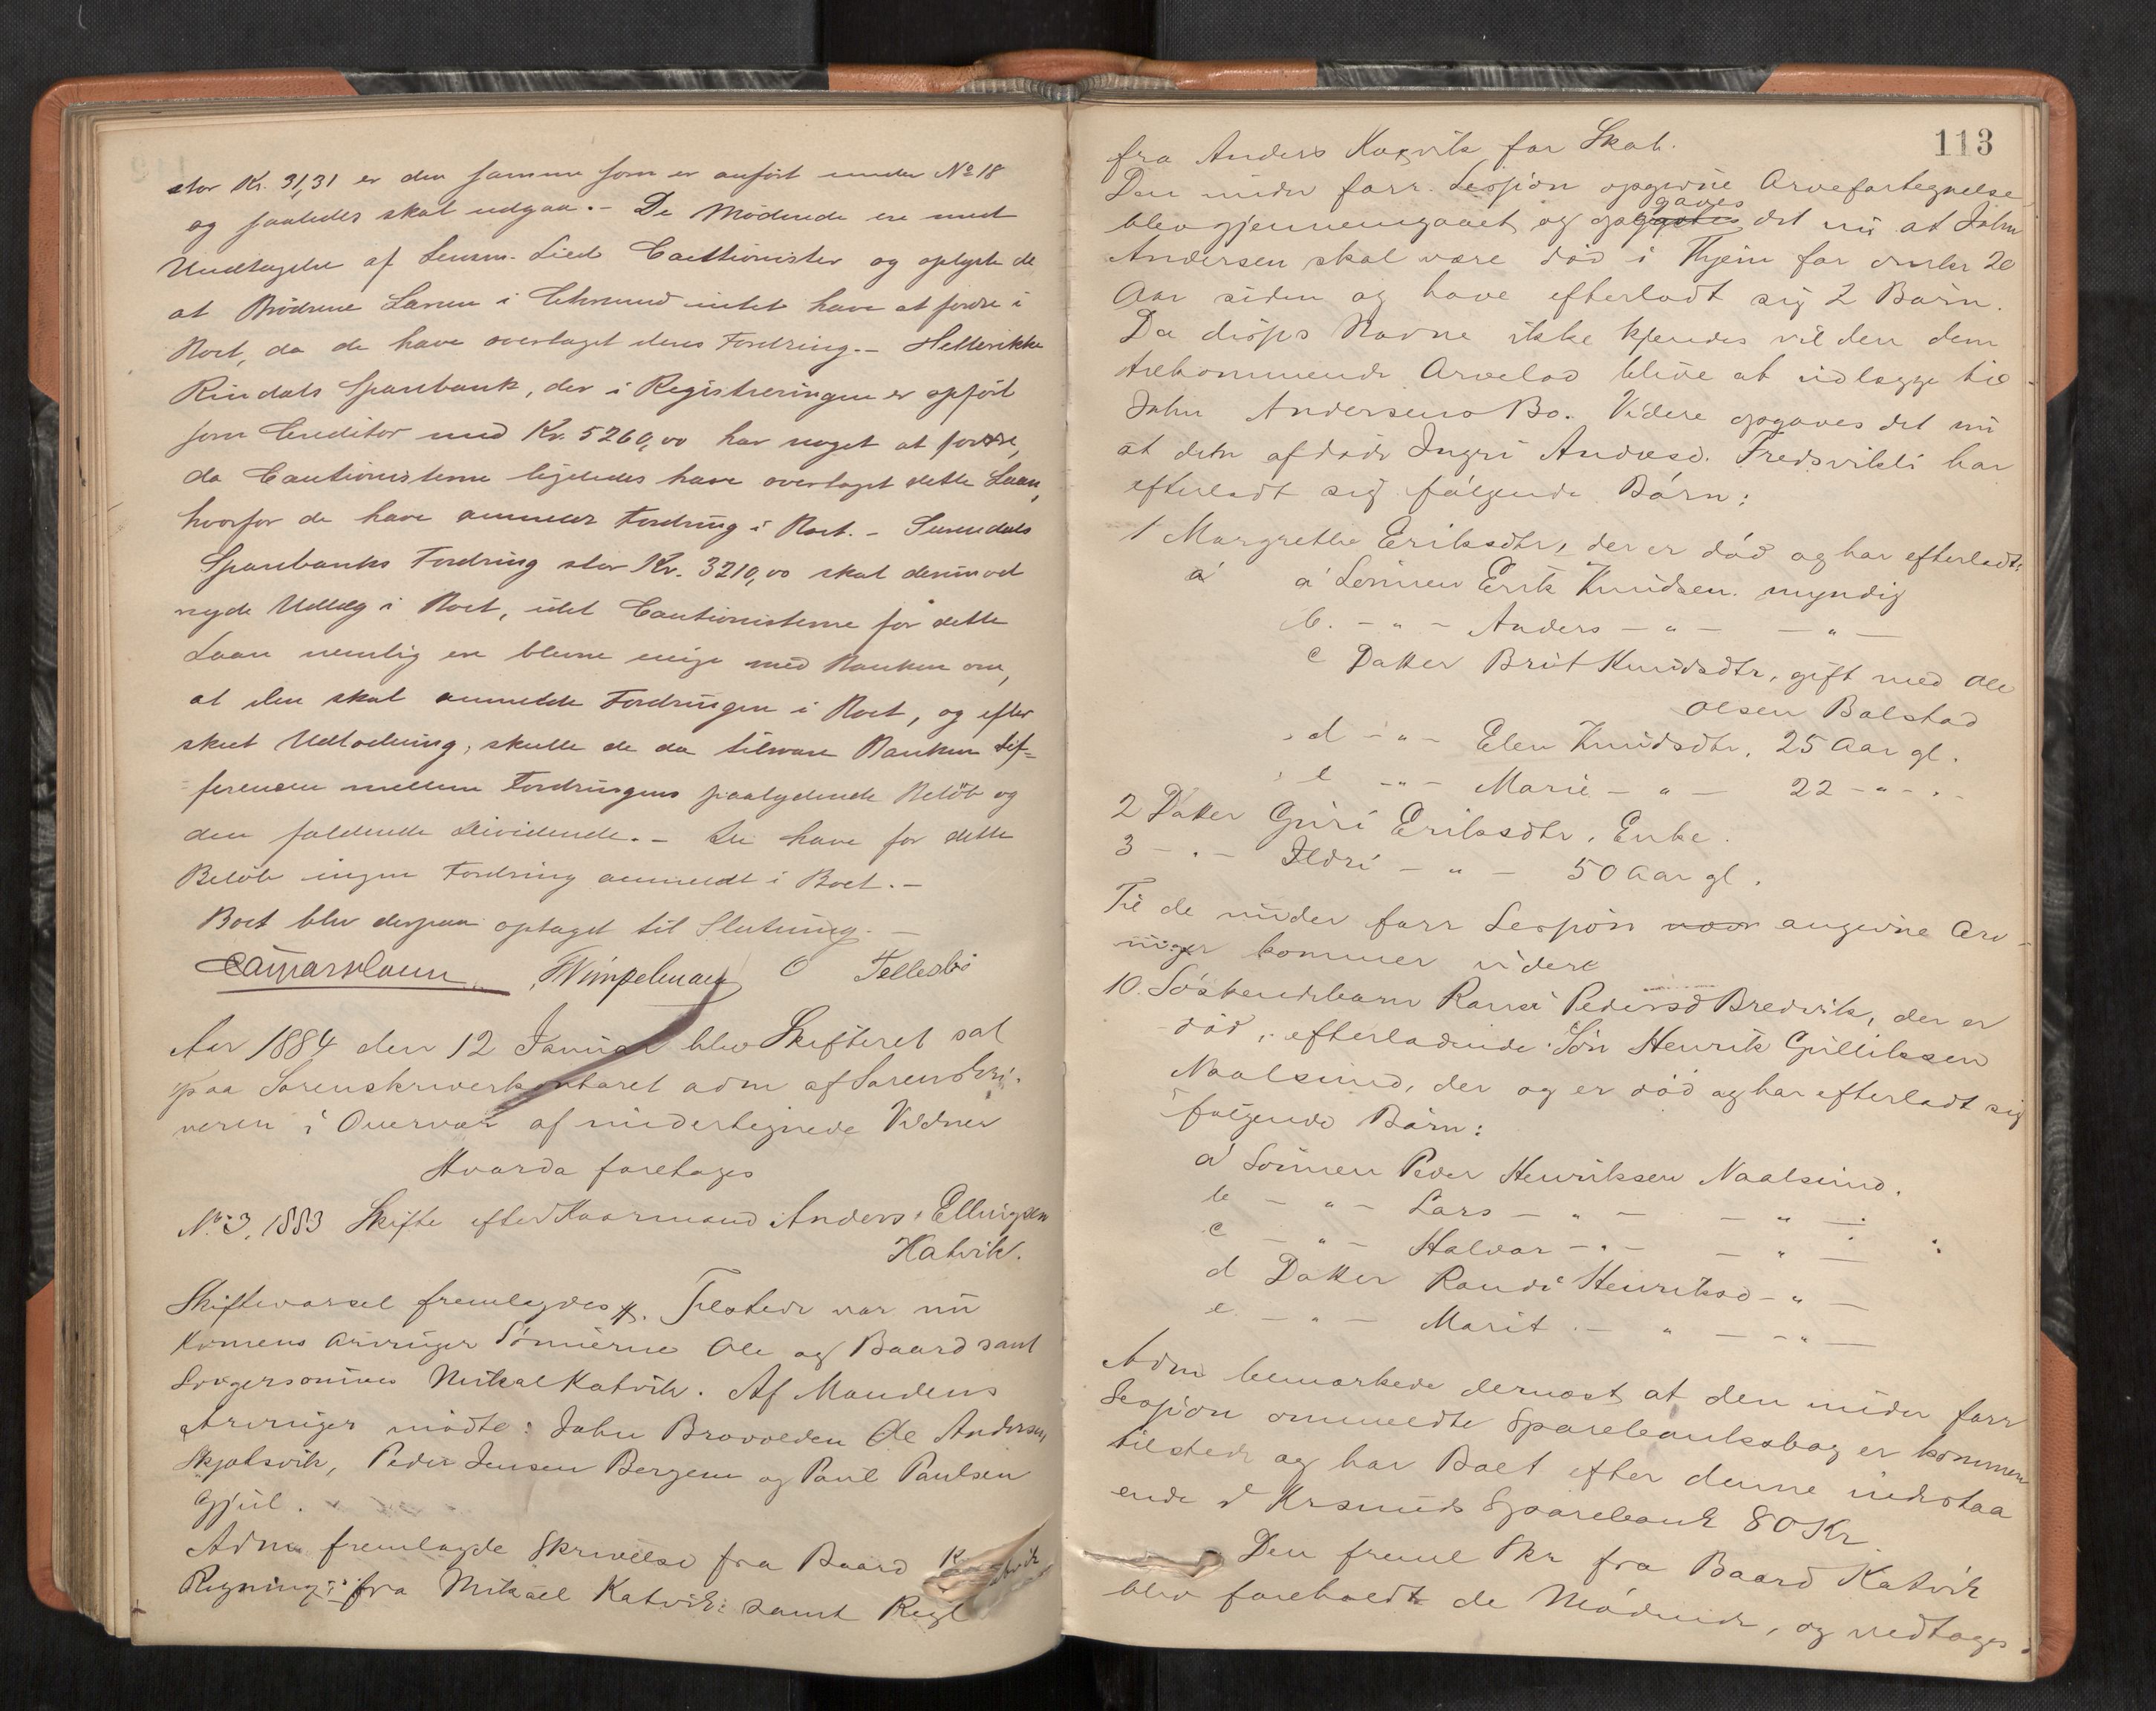 stor Kr. 31,31 er den samme som er anført under No 18
og saaledes skal udgaa. - De Mødende ere med
Undtagelse af Lensm. Lieds Cautionister og oplyste de
at Brødrene Larsen i Chrsund intet have at fordre i
Boet, da de have overtaget deres Fordring. - Hellerikke
Rindals Sparebank, der i Registreringen er opført
som Creditor med Kr. 5260,00 har noget at fordre,
da Cautionisterne ligeledes have overtaget dette Laan,
hvorfor de have anmeldt Fordring i Boet. - Surendals
Sparebanks Fordring stor Kr. 3210,00 skal derimod
nyde Udlæg i Boet, idet Cautionisterne for dette
Laan nemlig ere blevne enige med Banken om,
at den skal anmelde Fordringen i Boet, og efter
skeet Udlodning, skulle de da tilsvare Banken Dif=
ferencen mellem Fordringens paalydende Beløb og
den faldende Dividende. - De have for dette
Beløb ingen Fordring anmeldt i Boet. -
Boet blev derpaa optaget til Slutning. -
FWimpelmann O Tellesbø
Aar 1884 den 12 Januar blev Skifteret sat
paa Sorenskriverkontoret adm af Sorenskri-
veren i Overvær af undertegnede Vidner
Hvorda foretoges
No. 3, 1883 Skifte efter Kaarmand Anders Ellingsen
Katvik.
Skiftevarsel fremlagdes. Tilstede var nu
Konens Arvinger Sønnerne Ole og Baard samt
Svigersønnen Mikael Katvik. Af Mandens
Arvinger mødte: John Bravolden Ole Andersen
Skjølsvik, Peder Jensen Bergem og Paul Paulsen
Gjul.
Adm fremlagde Skrivelse fra Baard Katvik
Regning fra Mikael Katvik samt Regl
113
fra Anders Katvik for Skat.
Den under forr. Session opgivne Arvefortegnelse
blev gjennemgaaet og opgaves det nu at John
Andersen skal være død i Thjem for omkr 20
Aar siden og have efterladt sig 2 Børn.
Da disses Navne ikke kjendes vil den dem
tilkommende Arvelod blive at udlægge til
John Andersens Bo. Videre opgaves det nu
at den afdøde Ingri Andersd. Fredsvikli har
efterladt sig følgende Børn:
1 Margrethe Eriksdtr, der er død og har efterladt:
a a Sønnen Erik Knudsen. myndig
b. - " - Anders - " - - " -
c Datter Brit Knudsdtr, gift med Ole
Olsen Bolstad
d - " - Elen Knudsdtr, 25 Aar gl.
e - " - Marie - " - 22 - " - " -
2 Datter Guri Eriksdtr. Enke.
3 - " - Ildri - " - 50 Aar gl.
Til de under forr Session angivne Arv-
inger kommer videre
10. Søskendebarn Randi Pedersd Bredvik, der er
død, efterladende Søn Henrik Gulliksen
Naalsund, der og er død og har efterladt sig
følgende Børn:
a Sønnen Peder Henriksen Naalsund.
b - " - Lars - " - - " -
c - " - Halvor - " - - " -
d Datter Randi Henriksd - " -
e - " - Marit - " - - " -
Adm bemærkede dernæst at den under forr
Session ommeldte Sparebanksbog er kommen
tilstede og har Boet efter denne indestaa
ende i Krsunds Sparebank 80 Kr.
Den freml Skr fra Baard Katvik
blev foreholdt de Mødende, og vedtoges